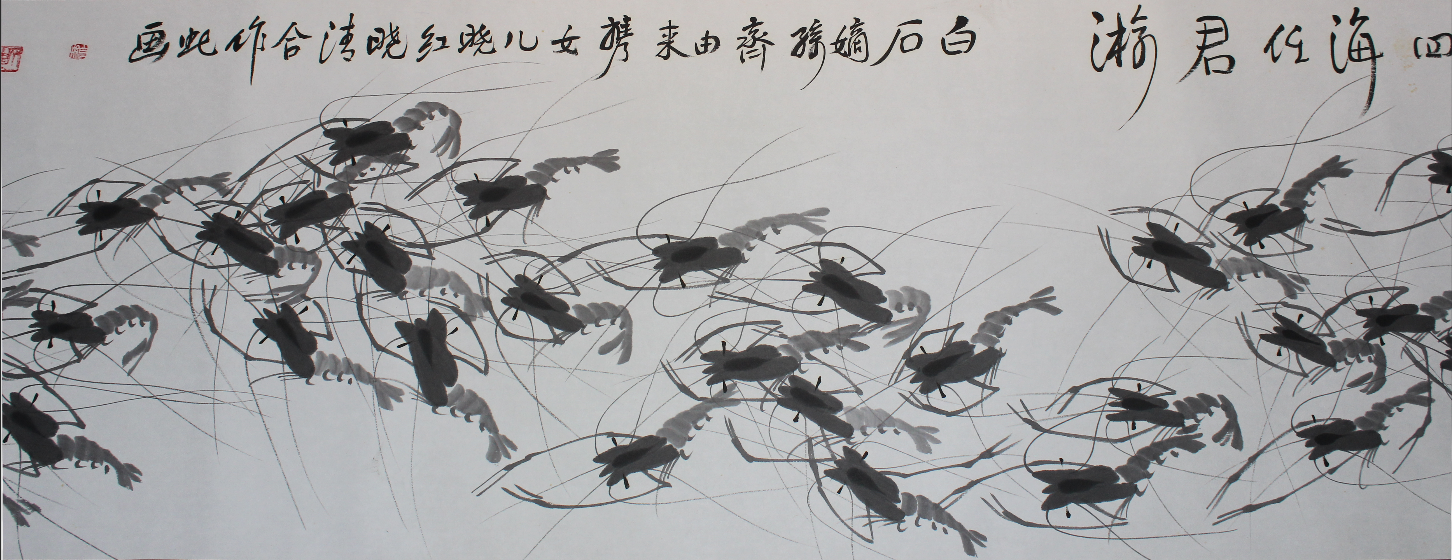 四海任君游
白石嫡孫齊由来携女儿晓红晓清合作此画